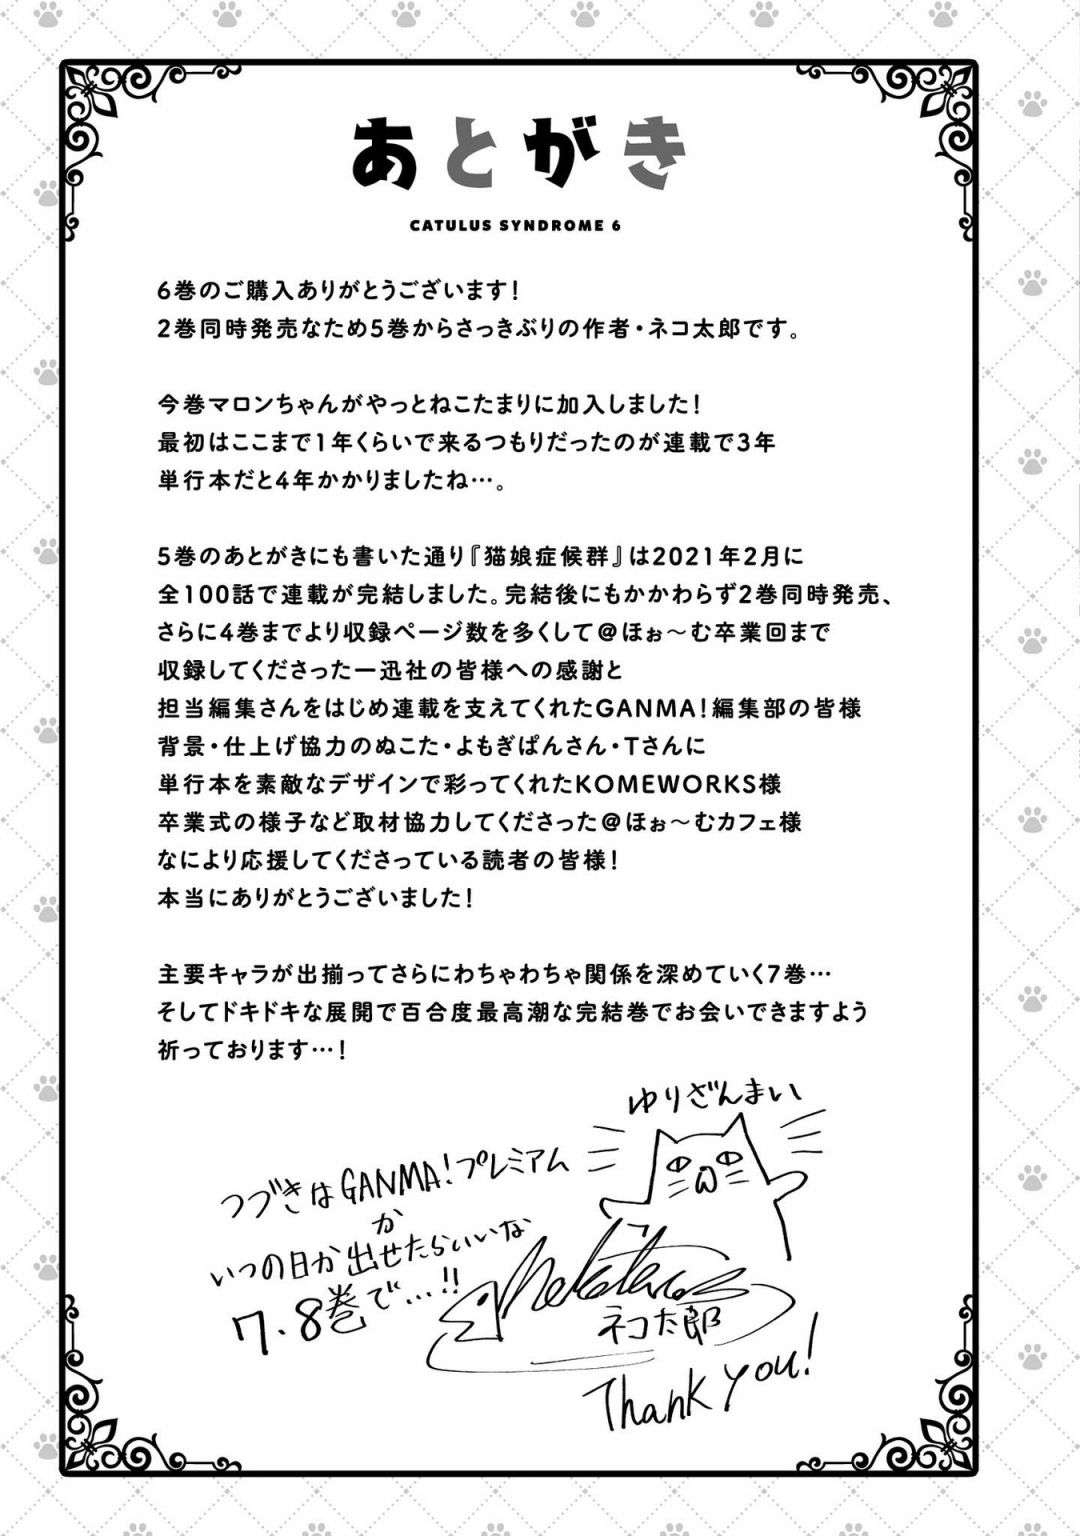 あとがき
CATULUS SYNDROME 6
6巻のご購入ありがとうございます！
2巻同時発売なため5巻からさっきぶりの作者・ネコ太郎です。
今巻マロンちゃんがやっとねこたまりに加入しました！
最初はここまで1年くらいで来るつもりだったのが連載で3年
単行本だと4年かかりましたね…。
5巻のあとがきにも書いた通り『猫娘症候群』は2021年2月に
全100話で連載が完結しました。完結後にもかかわらず2巻同時発売、
さらに4巻までより収録ページ数を多くして＠ほぉ～む卒業回まで
収録してくださった一迅社の皆様への感謝と
担当編集さんをはじめ連載を支えてくれたGANMA！編集部の皆様
背景・仕上げ協力のぬこた・よもぎぱんさん・Tさんに
単行本を素敵なデザインで彩ってくれたKOMEWORKS様
卒業式の様子など取材協力してくださった＠ほぉ～むカフェ様
なにより応援してくださっている読者の皆様！
本当にありがとうございました！
主要キャラが出揃ってさらにわちゃわちゃ関係を深めていく7巻…
そしてドキドキな展開で百合度最高潮な完結巻でお会いできますよう
祈っております…！
ゆりざんまい
つづきはGANMA！プレミアム
か
いつの日か出せたらいいな
7、8巻で…!!
ネコ太郎
Thank you!